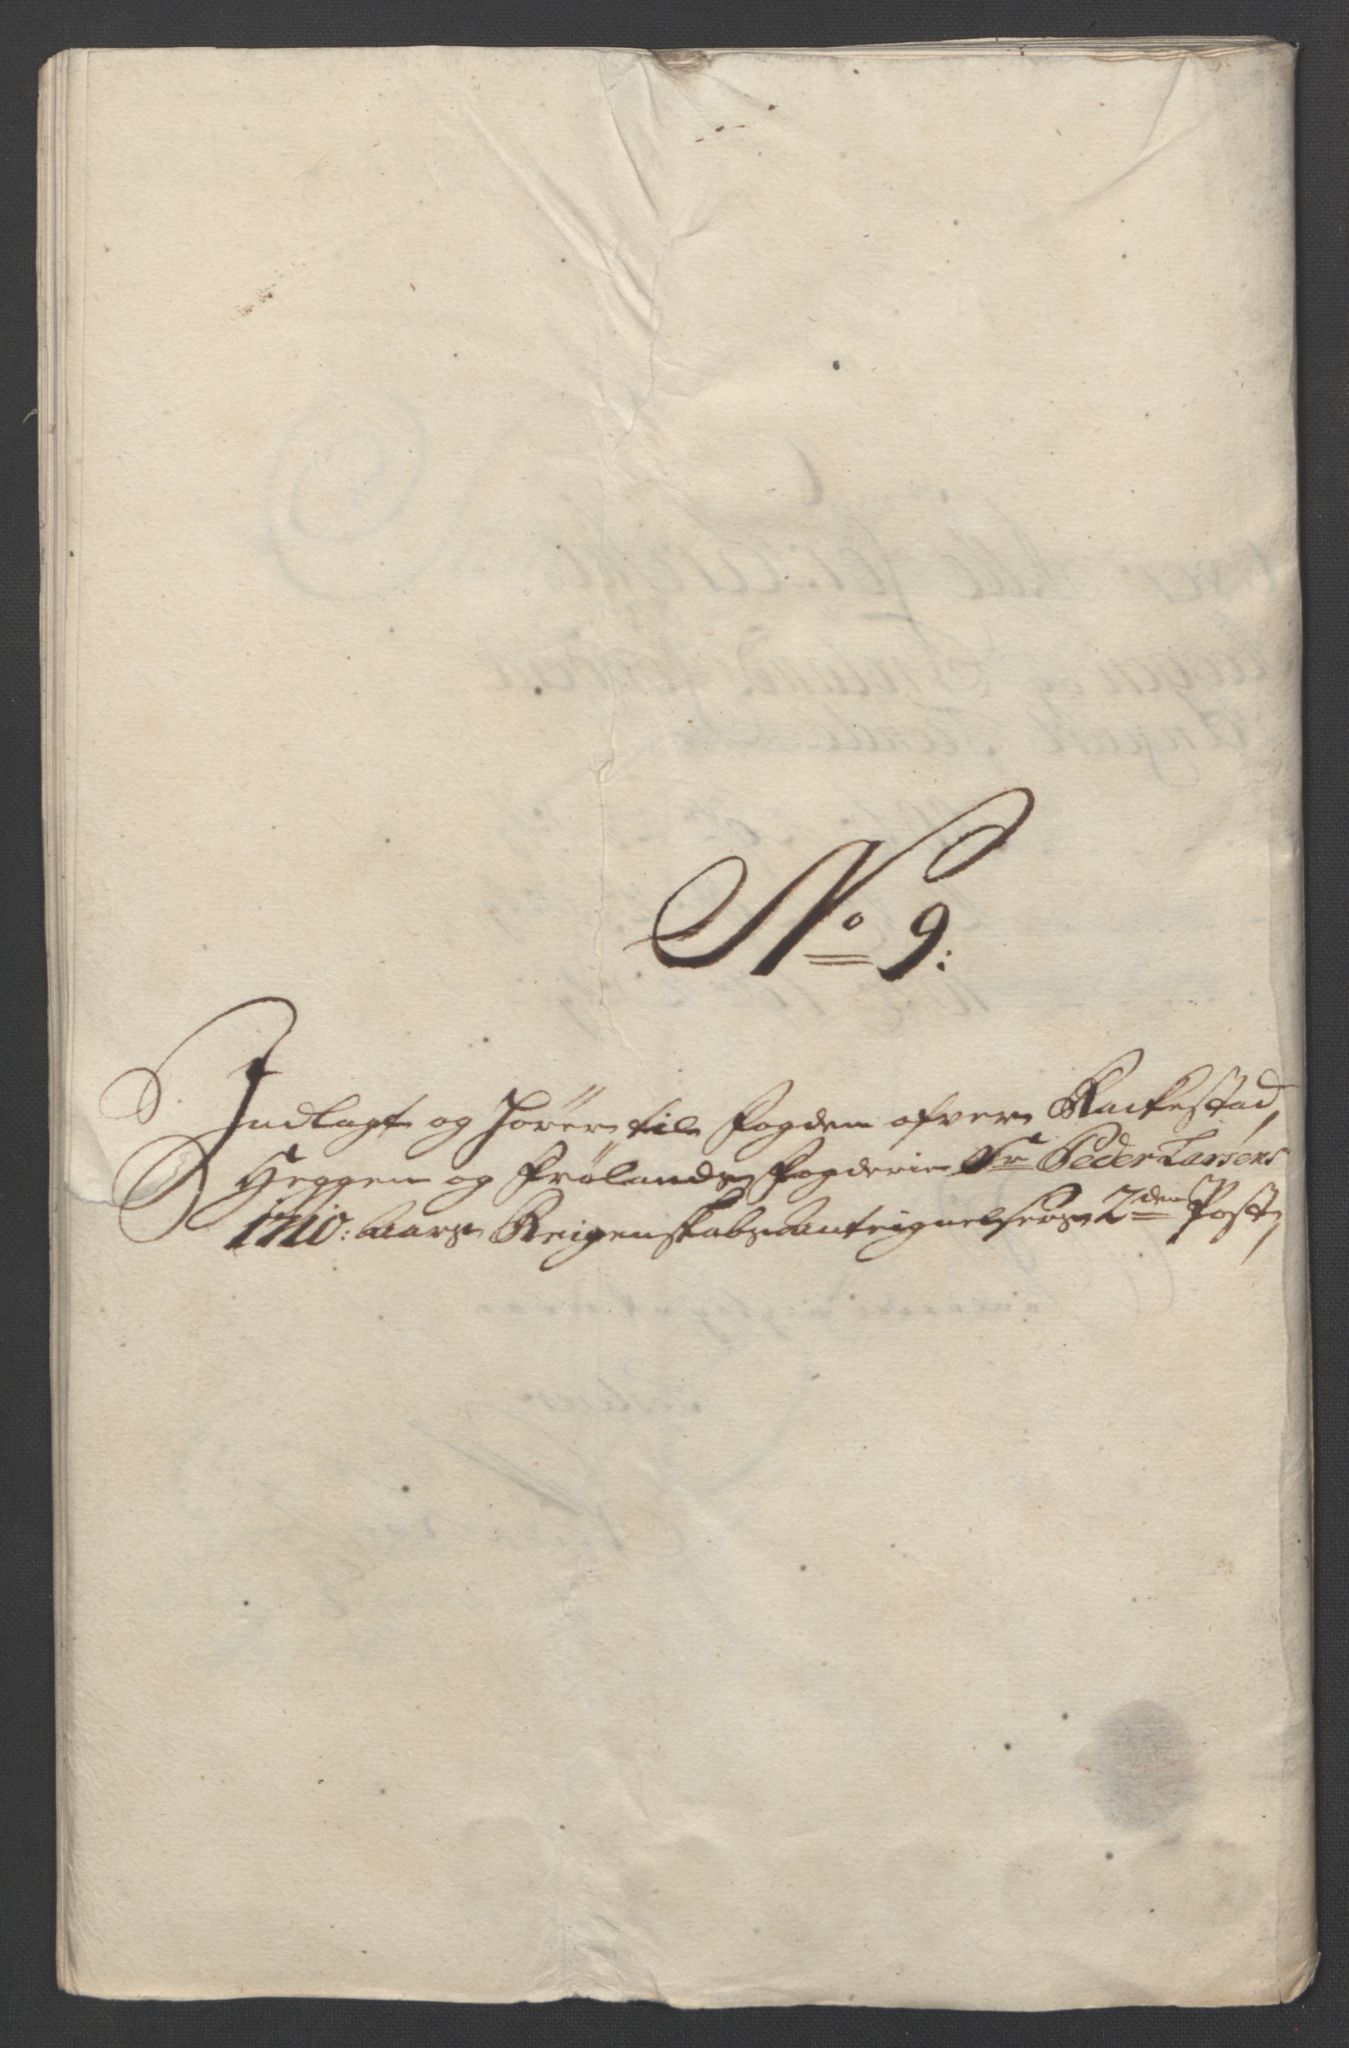 No 9:
Indlagt og hører til fogden ofver Rackestad,
Heggen og Frølands fogderie Sr Peder Larsens
1710: aars Reigenskabs antegnelsers 2den Post,